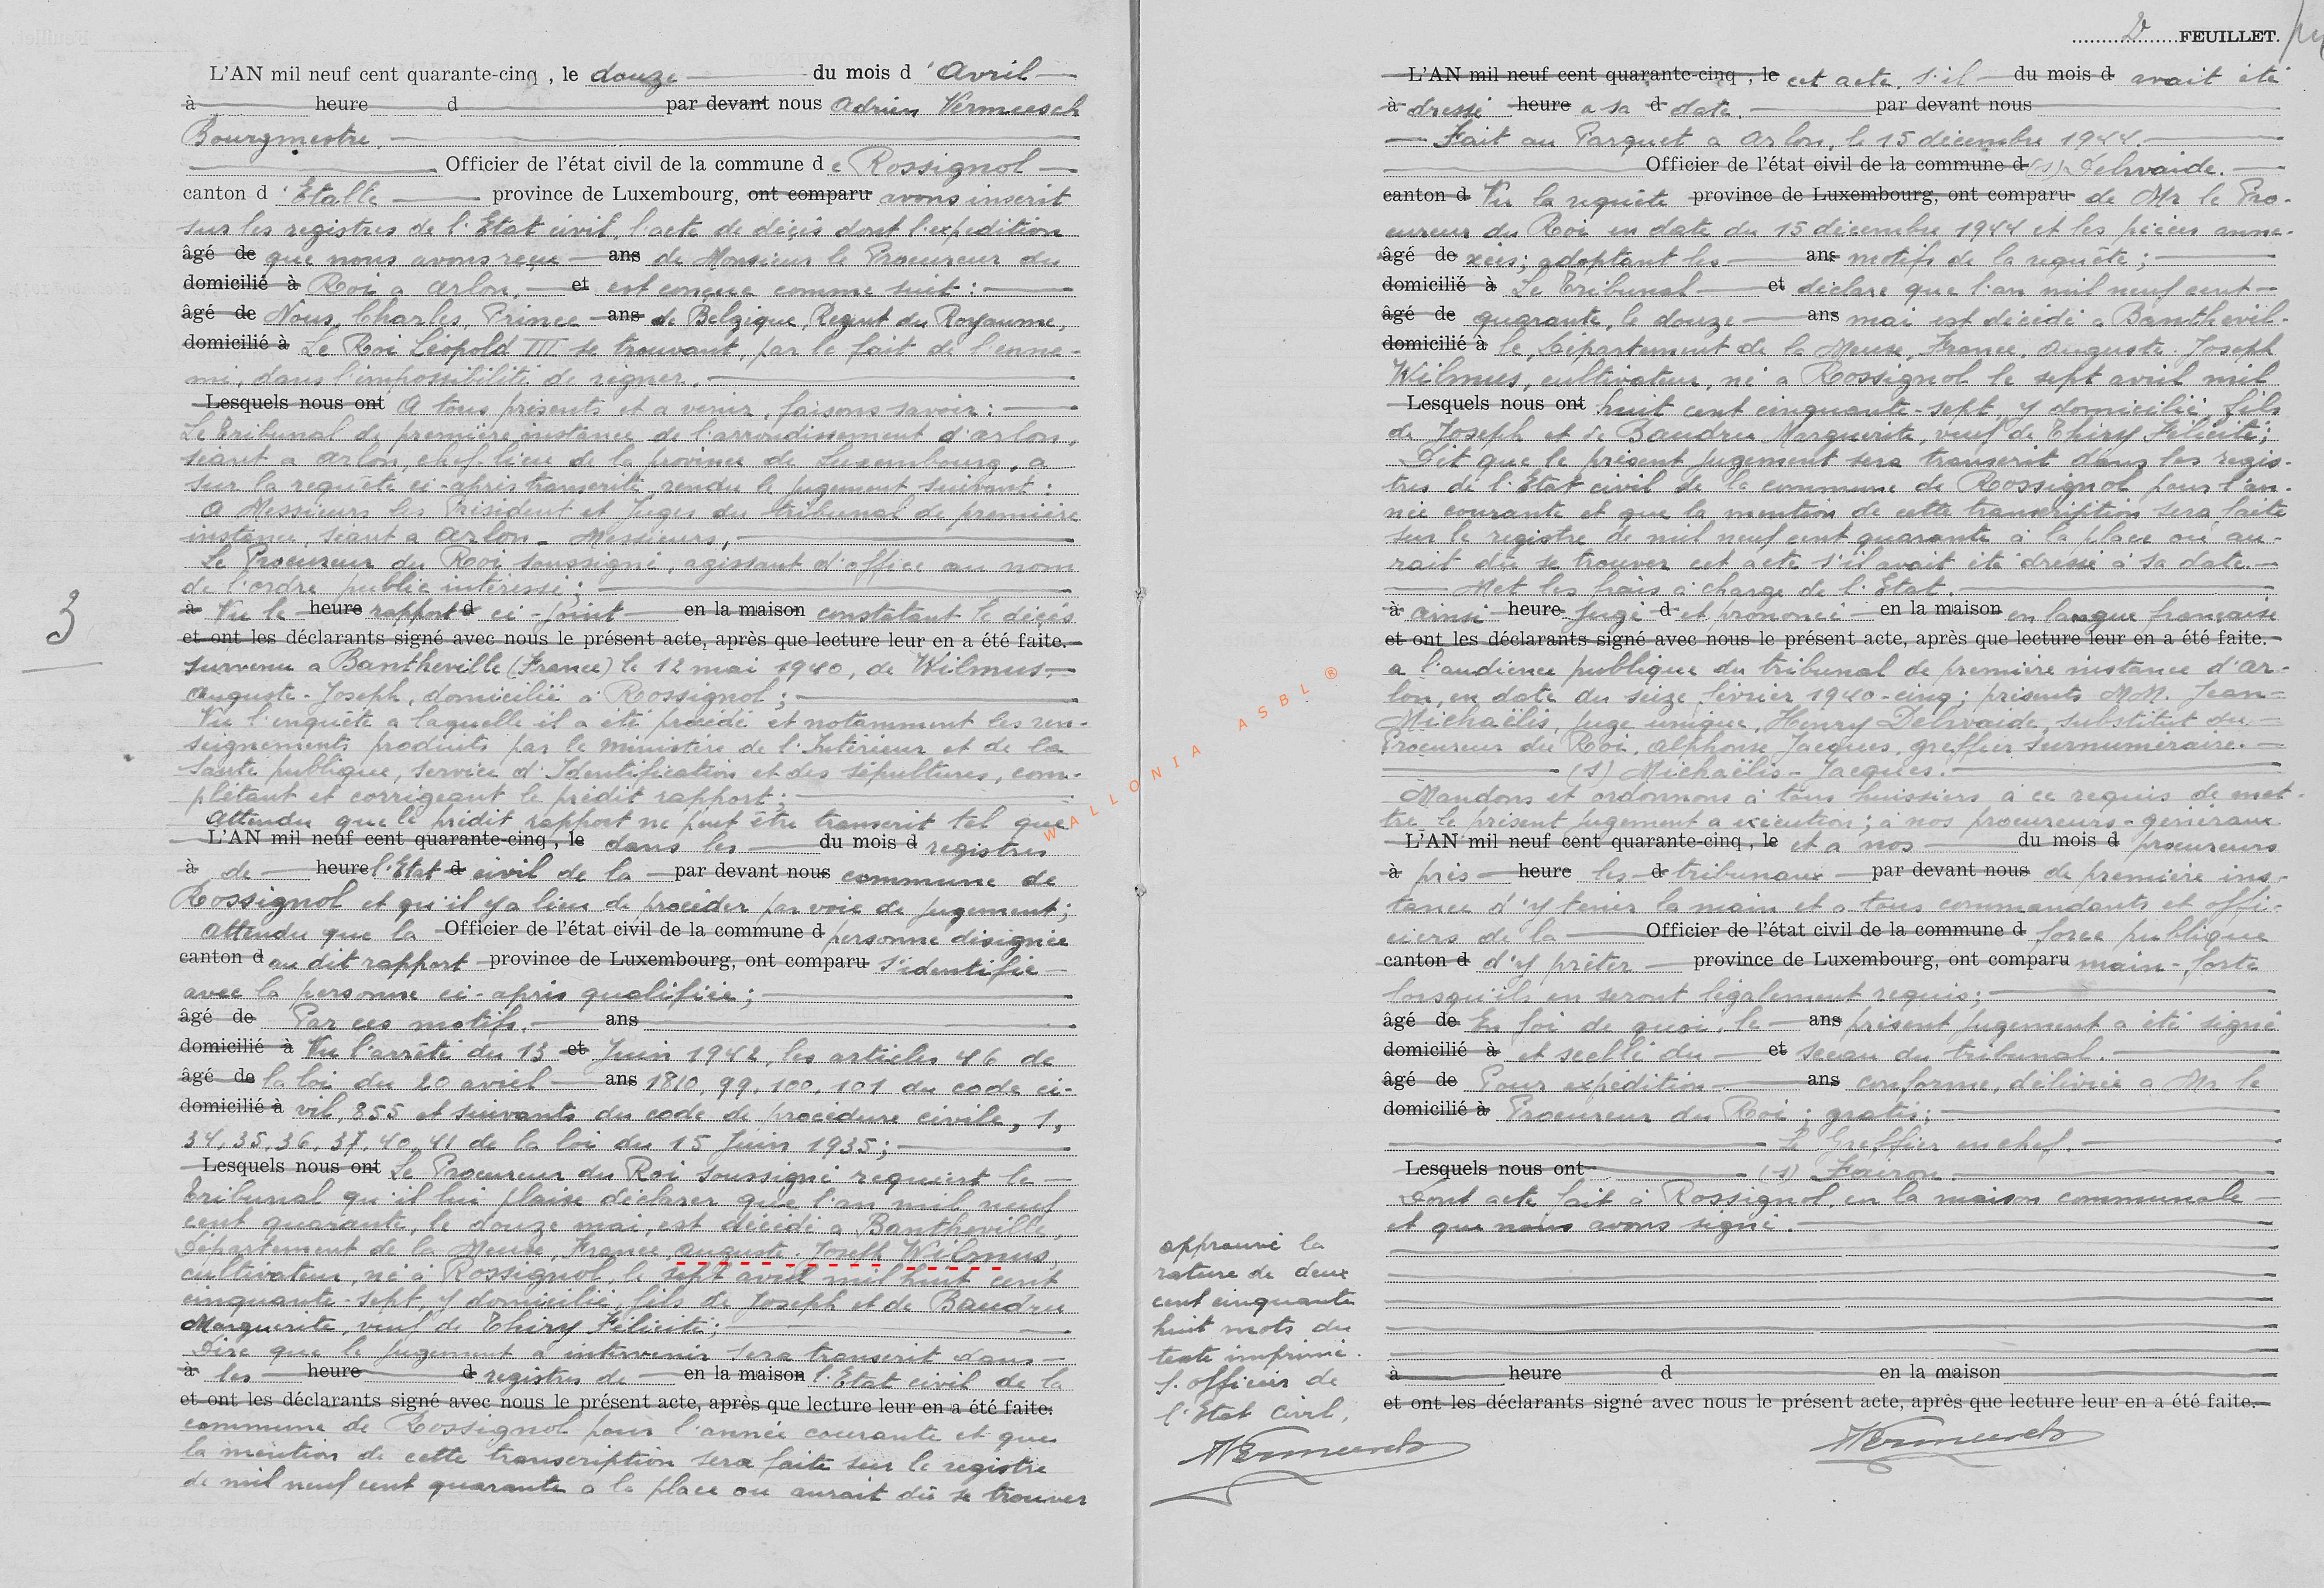 L'AN mil neuf cent quarante-cinq, le douze du mois d'Avril
à heure d par devant nous Adrien Vermeesch
Bourgmestre.
Officier de l'état civil de la commune de Rossignol
canton d'Etalle province de Luxembourg, ont comparu avons inscrit
sur les registres de l'Etat civil, l'acte de décès dont l'expédition
âgé de que nous avons reçue ans de Monsieur le Procureur du
domicilié à Roi a Arlon, et est conçue comme suit :
âgé de Nous, Charles, Prince ans de Belgique, Regent du Royaume,
domicilié à Le Roi Léopold III se trouvant, par le fait de l'enne-
mi, dans l'impossibilité de régner.
Lesquels nous ont A tous présents et a venir, faisons savoir :
Le Tribunal de première instance de l'arrondissement d'Arlon,
séant a Arlon, chef-lieu de la province de Luxembourg, a
sur la requête ci-après transcrite, rendu le jugement suivant :
A Messieurs les Président et Juges du tribunal de première
instance, séant a Arlon - Messieurs,
Le Procureur du Roi soussigné, agissant d'office au nom
de l'ordre public intéressé ;
3
à Vu le heure rapport d ci-joint en la maison constatant le décès
et ont les déclarants signé avec nous le présent acte, après que lecture leur en a été faite.
survenu a Bantheville (France) le 12 mai 1940, de Wilmus
Auguste-Joseph, domicilié à Rossignol ;
Vu l'enquête a laquelle il a été procédé et notamment les ren-
seignements produits par le ministère de l'Intérieur et de la
santé publique, service d'Identification et des sépultures, com-
plétant et corrigeant le prédit rapport ;
Attendu que le prédit rapport ne peut être transcrit tel que
L'AN mil neuf cent quarante-cinq, le dans les du mois d registres
à de heure l'Etat d civil de la par devant nous commune de
Rossignol et qu'il y a lieu de procéder par voie de jugement ;
Attendu que la Officier de l'état civil de la commune d personne désignée
canton d au dit rapport province de Luxembourg, ont comparu s'identifie
avec la personne ci-après qualifiée ;
âgé de Par ces motifs, ans
domicilié à Vu l'arrêté du 13 et Juin 1942, les articles 46 de
âgé de la loi du 20 avril ans 1810, 99, 100, 101 du code ci-
domicilié à vil, 855 et suivants du code de procédure civile, 1,
34, 35, 36, 37, 40, 41 de la loi du 15 Juin 1935 ;
Lesquels nous ont Le Procureur du Roi soussigné requiert le
Tribunal qu'il lui plaise déclarer que l'an mil neuf
cent quarante, le douze mai, est décédé a Bantheville,
Département de la Meuse, France, Auguste-Joseph Wilmus,
cultivateur, né à Rossignol, le sept avril mil huit cent
cinquante-sept y domicilié, fils de Joseph et de Baudru
Marguerite, veuf de Thiry Félicité ;
Dire que le jugement a intervenir sera transcrit dans
à les heure d registres de en la maison l'Etat civil de la
et ont les déclarants signé avec nous le présent acte, après que lecture leur en a été faite.
commune de Rossignol pour l'année courante et que
la mention de cette transcription sera faite sur le registre
de mil neuf cent quarante a la place ou aurait dû se trouver
WALLONIA ASBL ®
2 FEUILLET.
L'AN mil neuf cent quarante-cinq, le cet acte, s'il du mois d avait été
à dressé heure a sa d date. par devant nous
Fait au Parquet a Arlon, le 15 décembre 1944.
Officier de l'état civil de la commune d (s) Delvaide.
canton d Vu la requête province de Luxembourg, ont comparu de Mr le Pro-
cureur du Roi en date du 15 décembre 1944 et les pièces anne-
âgé de xées ; adoptant les ans motifs de la requête ;
domicilié à Le Tribunal et déclare que l'an mil neuf cent
âgé de quarante, le douze ans mai est décédé a Banthevil-
domicilié à le, Département de la Meuse, France, Auguste-Joseph
Wilmus, cultivateur, né a Rossignol le sept avril mil
Lesquels nous ont huit cent cinquante-sept y domicilié, fils
de Joseph et de Baudru Marguerite, veuf de Thiry Félicité ;
Dit que le présent jugement sera transcrit dans les regis-
tres de l'Etat civil de la commune de Rossignol pour l'an-
née courante et que la mention de cette transcription sera faite
sur le registre de mil neuf cent quarante à la place où au-
rait dû se trouver cet acte s'il avait été dressé à sa date.
Met les frais à charge de l'Etat.
à Ainsi heure jugé d et prononcé en la maison en langue française
et ont les déclarants signé avec nous le présent acte, après que lecture leur en a été faite.
a l'audience publique du tribunal de première instance d'Ar-
lon, en date du seize février 1940-cinq ; présents M.M. Jean
Michaëlis, juge unique, Henry Delvaide, substitut du
Procureur du Roi, Alphonse Jacques, greffier surnuméraire.
(s) Michaëlis - Jacques.
Mandons et ordonnons à tous huissiers à ce requis de met-
tre le présent jugement a exécution ; à nos procureurs-généraux
L'AN mil neuf cent quarante-cinq, le et a nos du mois d procureurs
à près heure les d tribunaux par devant nous de première ins-
tance d'y tenir la main et a tous commandants et offi-
ciers de la Officier de l'état civil de la commune d force publique
canton d d'y prêter province de Luxembourg, ont comparu main-forte
lorsqu'ils en seront légalement requis ;
âgé de En foi de quoi, le ans présent jugement a été signé
domicilié à et scellé du et sceau du tribunal.
âgé de Pour expédition ans conforme, délivrée a Mr le
domicilié à Procureur du Roi ; gratis ;
Le Greffier en chef.
Lesquels nous ont (s)
Dont acte fait à Rossignol, en la maison communale
et que nous avons signé.
à heure d en la maison
et ont les déclarants signé avec nous le présent acte, après que lecture leur en a été faite.
Vermeesch
approuvé la
rature de deux
cent cinquante
huit mots du
texte imprimé.
L'officier de
l'Etat Civil,
Vermeesch